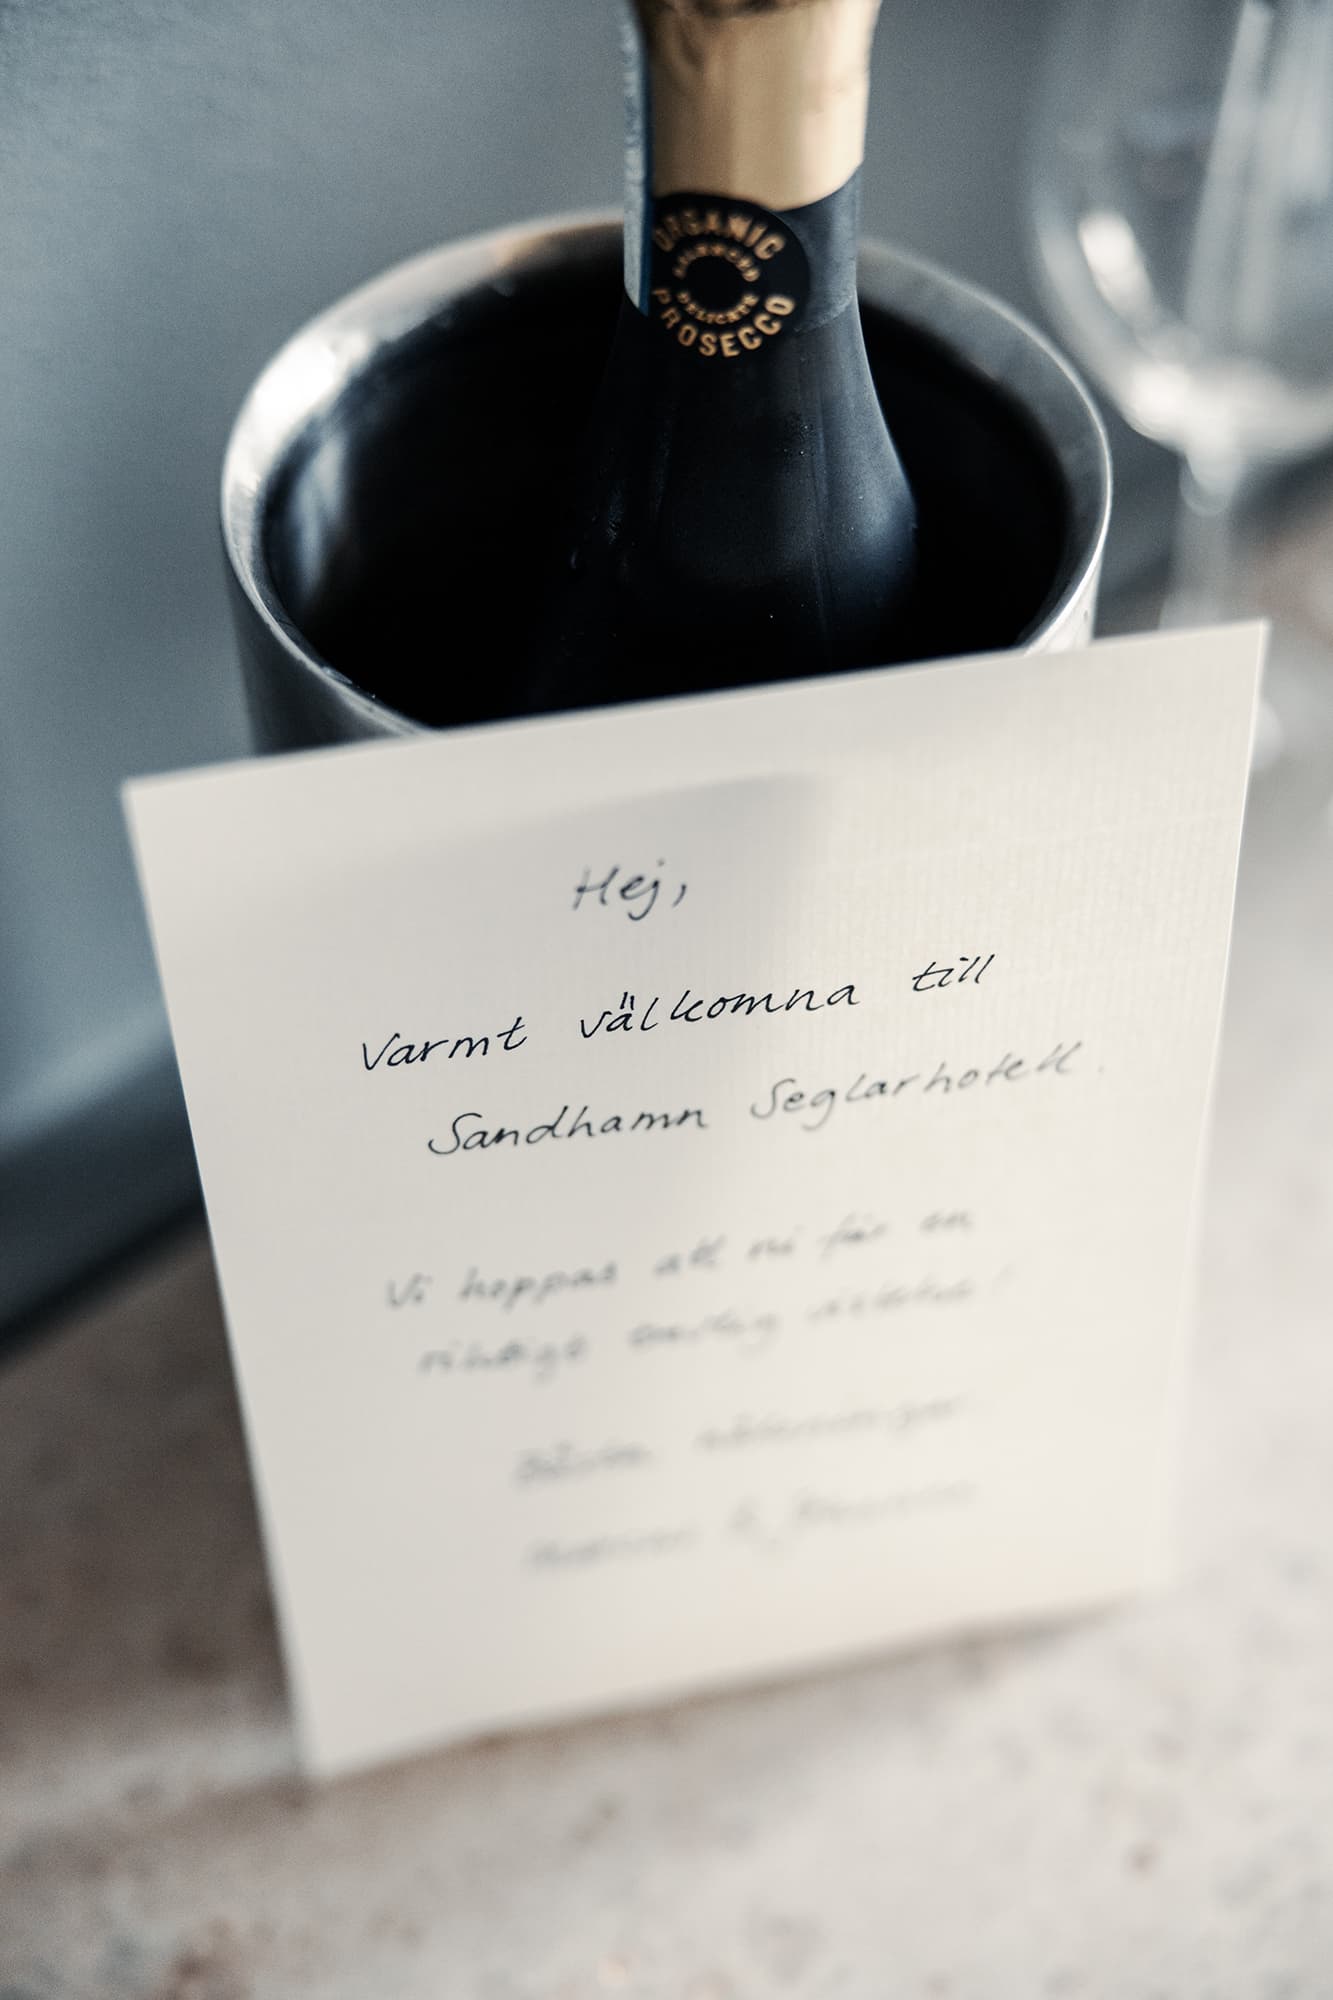 ORGANIC
DELICATE
PROSECCO
Hej,
Varmt välkomna till
Sandhamn Seglarhotell.
Vi hoppas att ni får en
riktigt
Bästa hälsningar